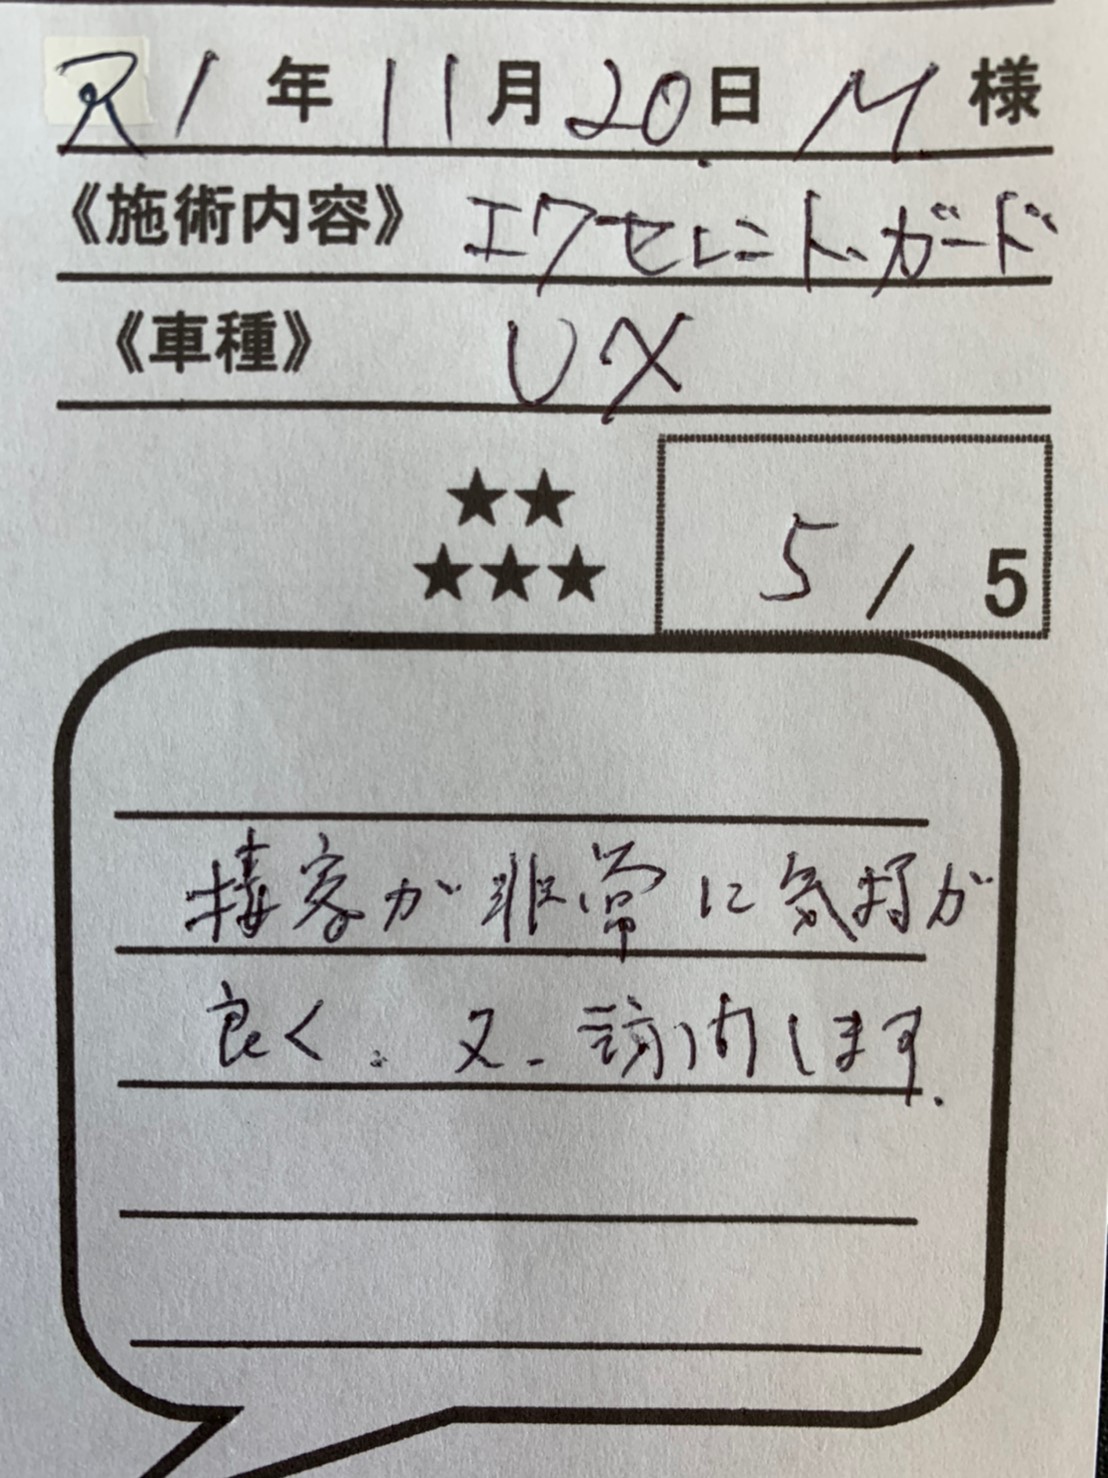 R1年11月20日 M様
《施術内容》 エクセレント・ガード
《車種》 UX
★★
★★★
5/5
接客が非常に気持が
良く、又、訪問します.